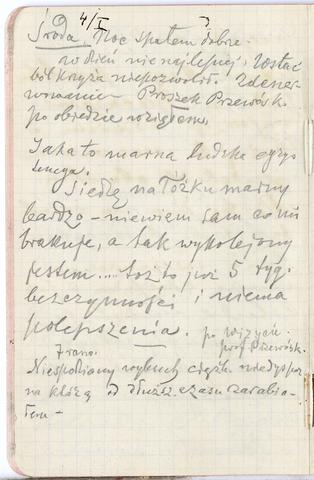 4/I
Środa, Noc spałem dobrze.
w dzień nienajlepiej. Wostać
ból krzyża niepozwolił. Zdener-
wowanie Proszek Przewórsk.
po obiedzie wziąłem.
Jaka to marna ludzka egzys
tencja.
Siedzę na łóżku marny
bardzo – niewiem sam co mi
brakuje, a tak wykolejony
jestem.... toż to już 5 tyg.
bezczynności i niema
polepszenia. po wizycie
prof. Przewórsk.
Z rana.
Niespodziany wybuch ciężk. niedyspoz
na którą od dłuższ. czasu zarabia-
łem –